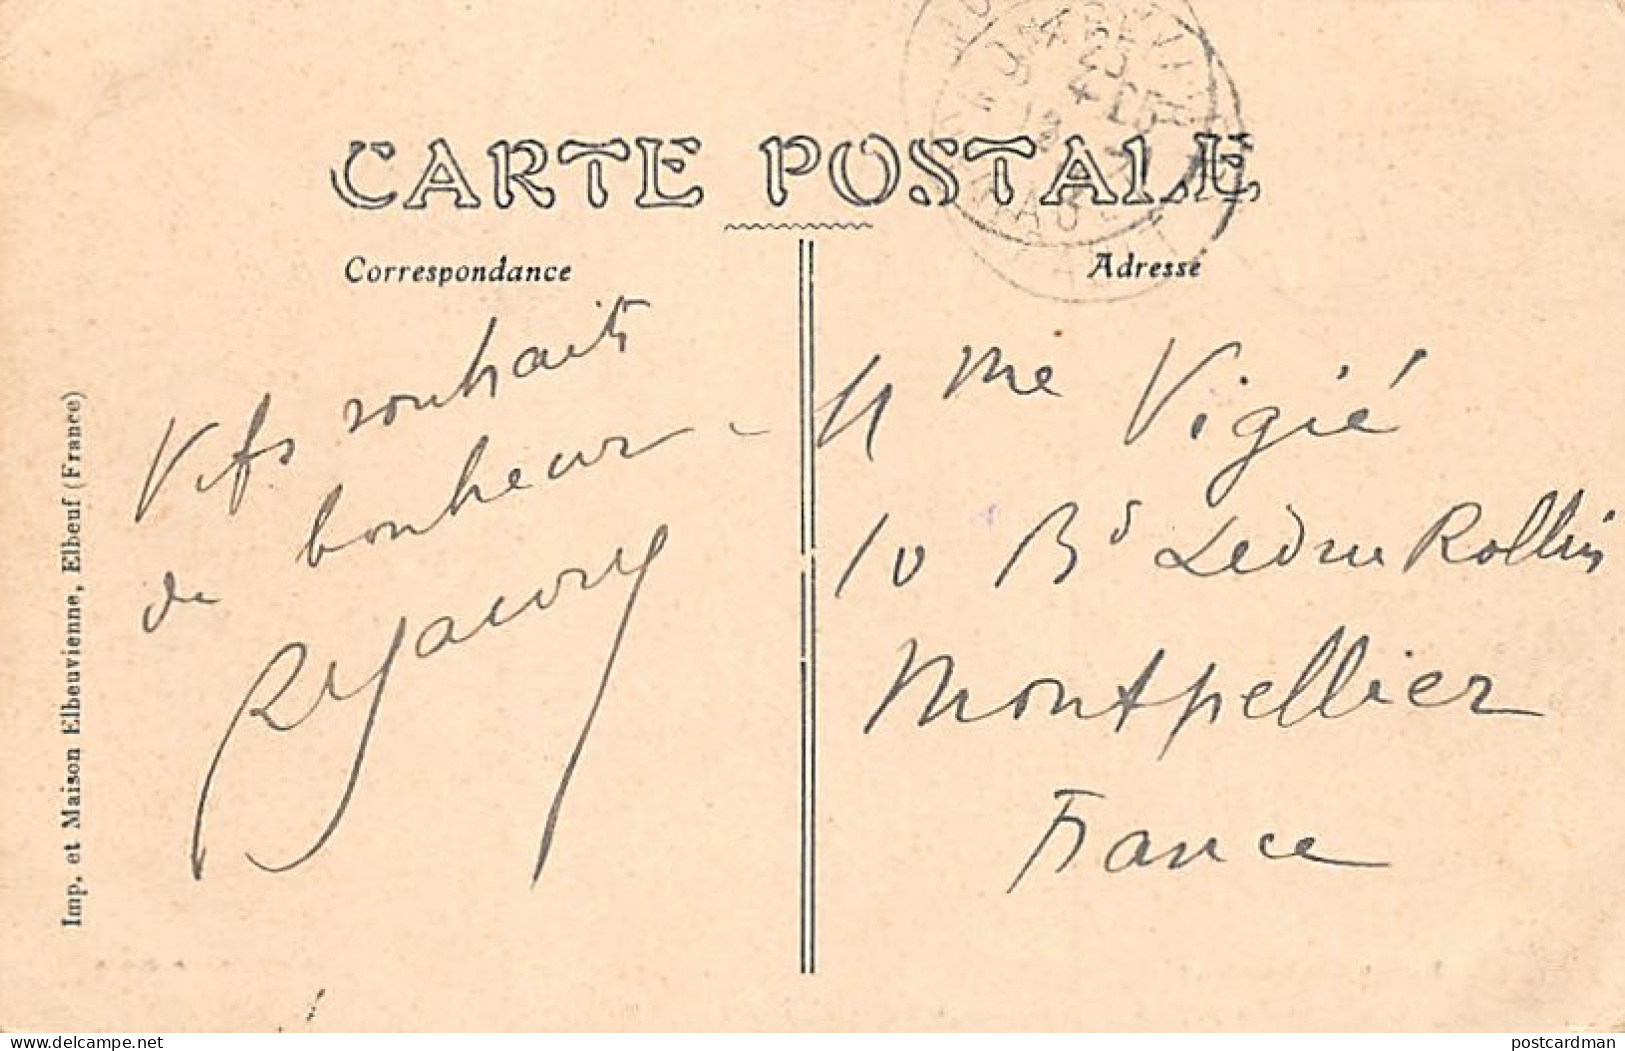 CARTE POSTALE
Correspondance
Adresse
Vifs souhaits
de bonheur -
Mme Vigié
10 Bd Ledru Rollin
Montpellier
France
Imp. et Maison Elbeuvienne, Elbeuf (France)
delcampe.net
postcardman